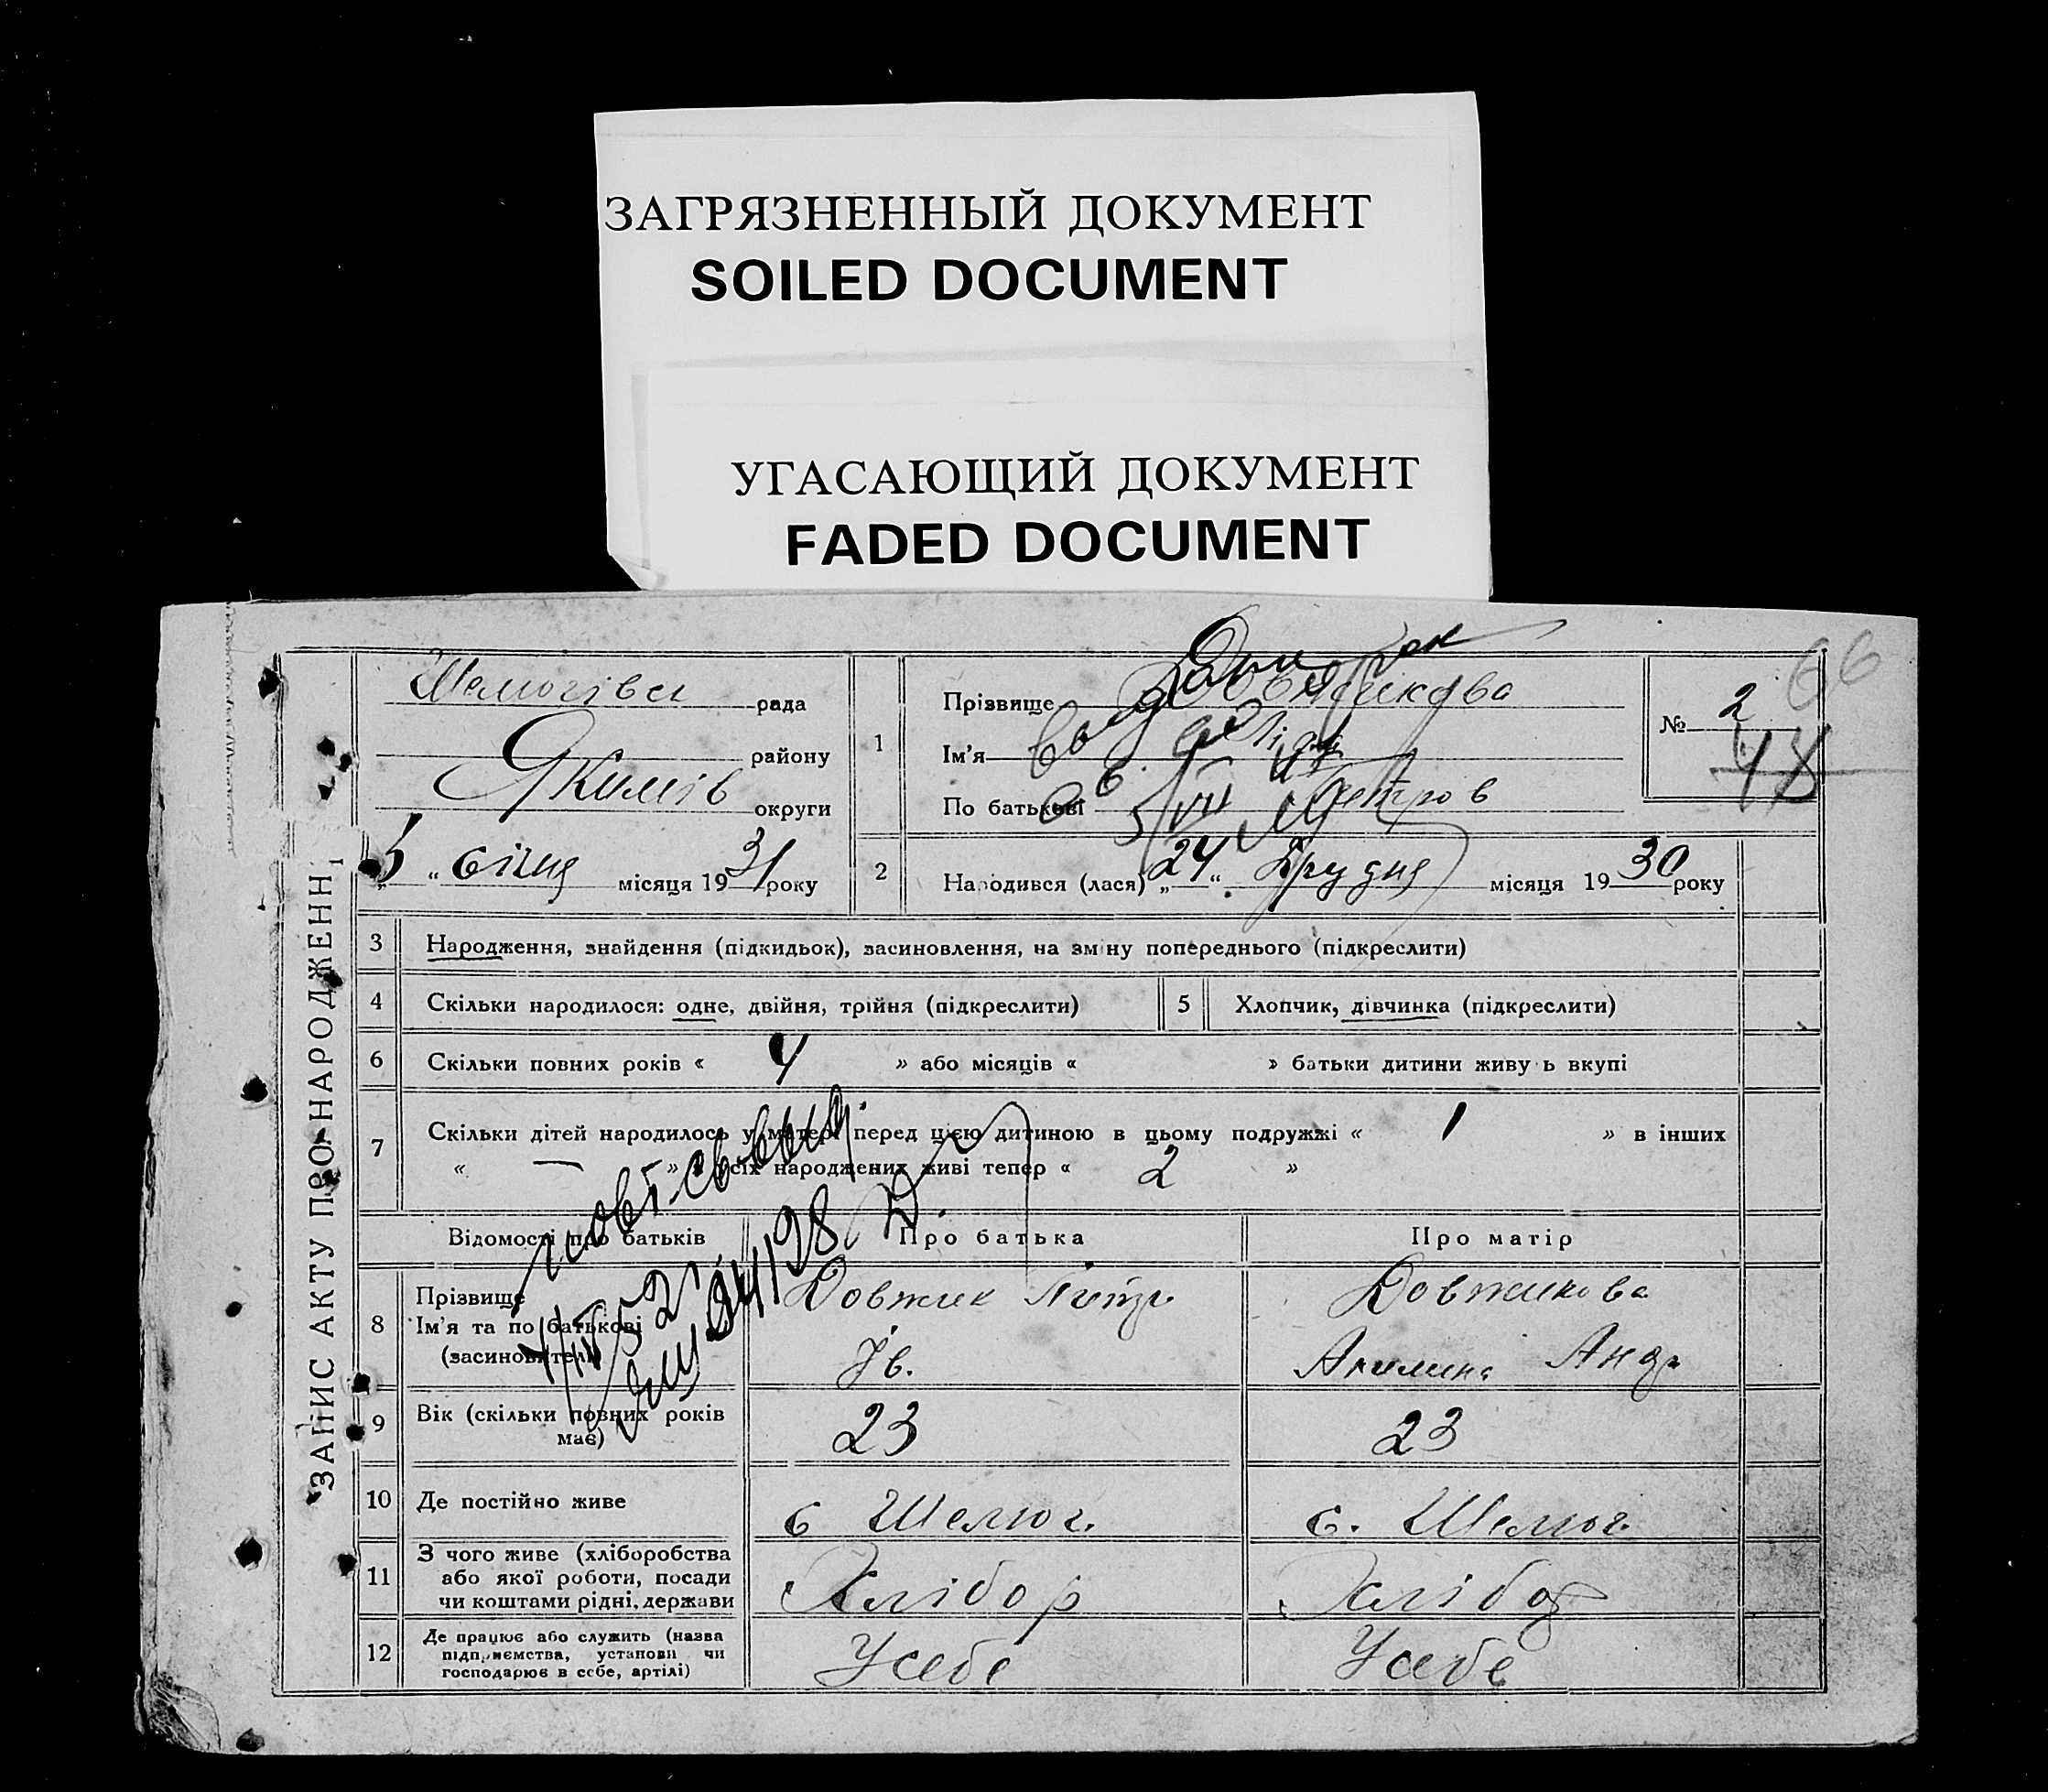 ЗАГРЯЗНЕННЫЙ ДОКУМЕНТ
SOILED DOCUMENT
УГАСАЮЩИЙ ДОКУМЕНТ
FADED DOCUMENT
66
ЗАПИС АКТУ ПРО НАРОДЖЕНН
Шелюгівсь рада
району
Якимів округи
5 " січня місяця 1931 року
1
Прізвище Довжикова
Ім'я Лідія
По батькові Петров
№ 2
48
2
Народився (лася) „24" Грудня місяця 1930 року
3 Народження, знайдення (підкидьок), засиновлення, на зміну попереднього (підкреслити)
4 Скільки народилося: одне, двійня, трійня (підкреслити)
5 Хлопчик, дівчинка (підкреслити)
6 Скільки повних років « 4 » або місяців « » батьки дитини живу ь вкупі
7 Скільки дітей народилось у матері перед цією дитиною в цьому подружжі « 1 » в інших
« — » з усіх народжених живі тепер « 2 »
Відомості про батьків Про батька Про матір
8 Прізвище
Ім'я та по батькові
(засиновителі)
Довжик Петр
Ів.
Довжикова
Акилина Андр
9 Вік (скільки повних років
має)
23 23
10 Де постійно живе с Шелюг. с. Шелюг.
11 З чого живе (хліборобства
або якої роботи, посади
чи коштами рідні, держави
Хлібор Хлібор
12 Де працює або служить (назва
підприємства, установи чи
господарює в себе, артілі)
Усебе Усебе